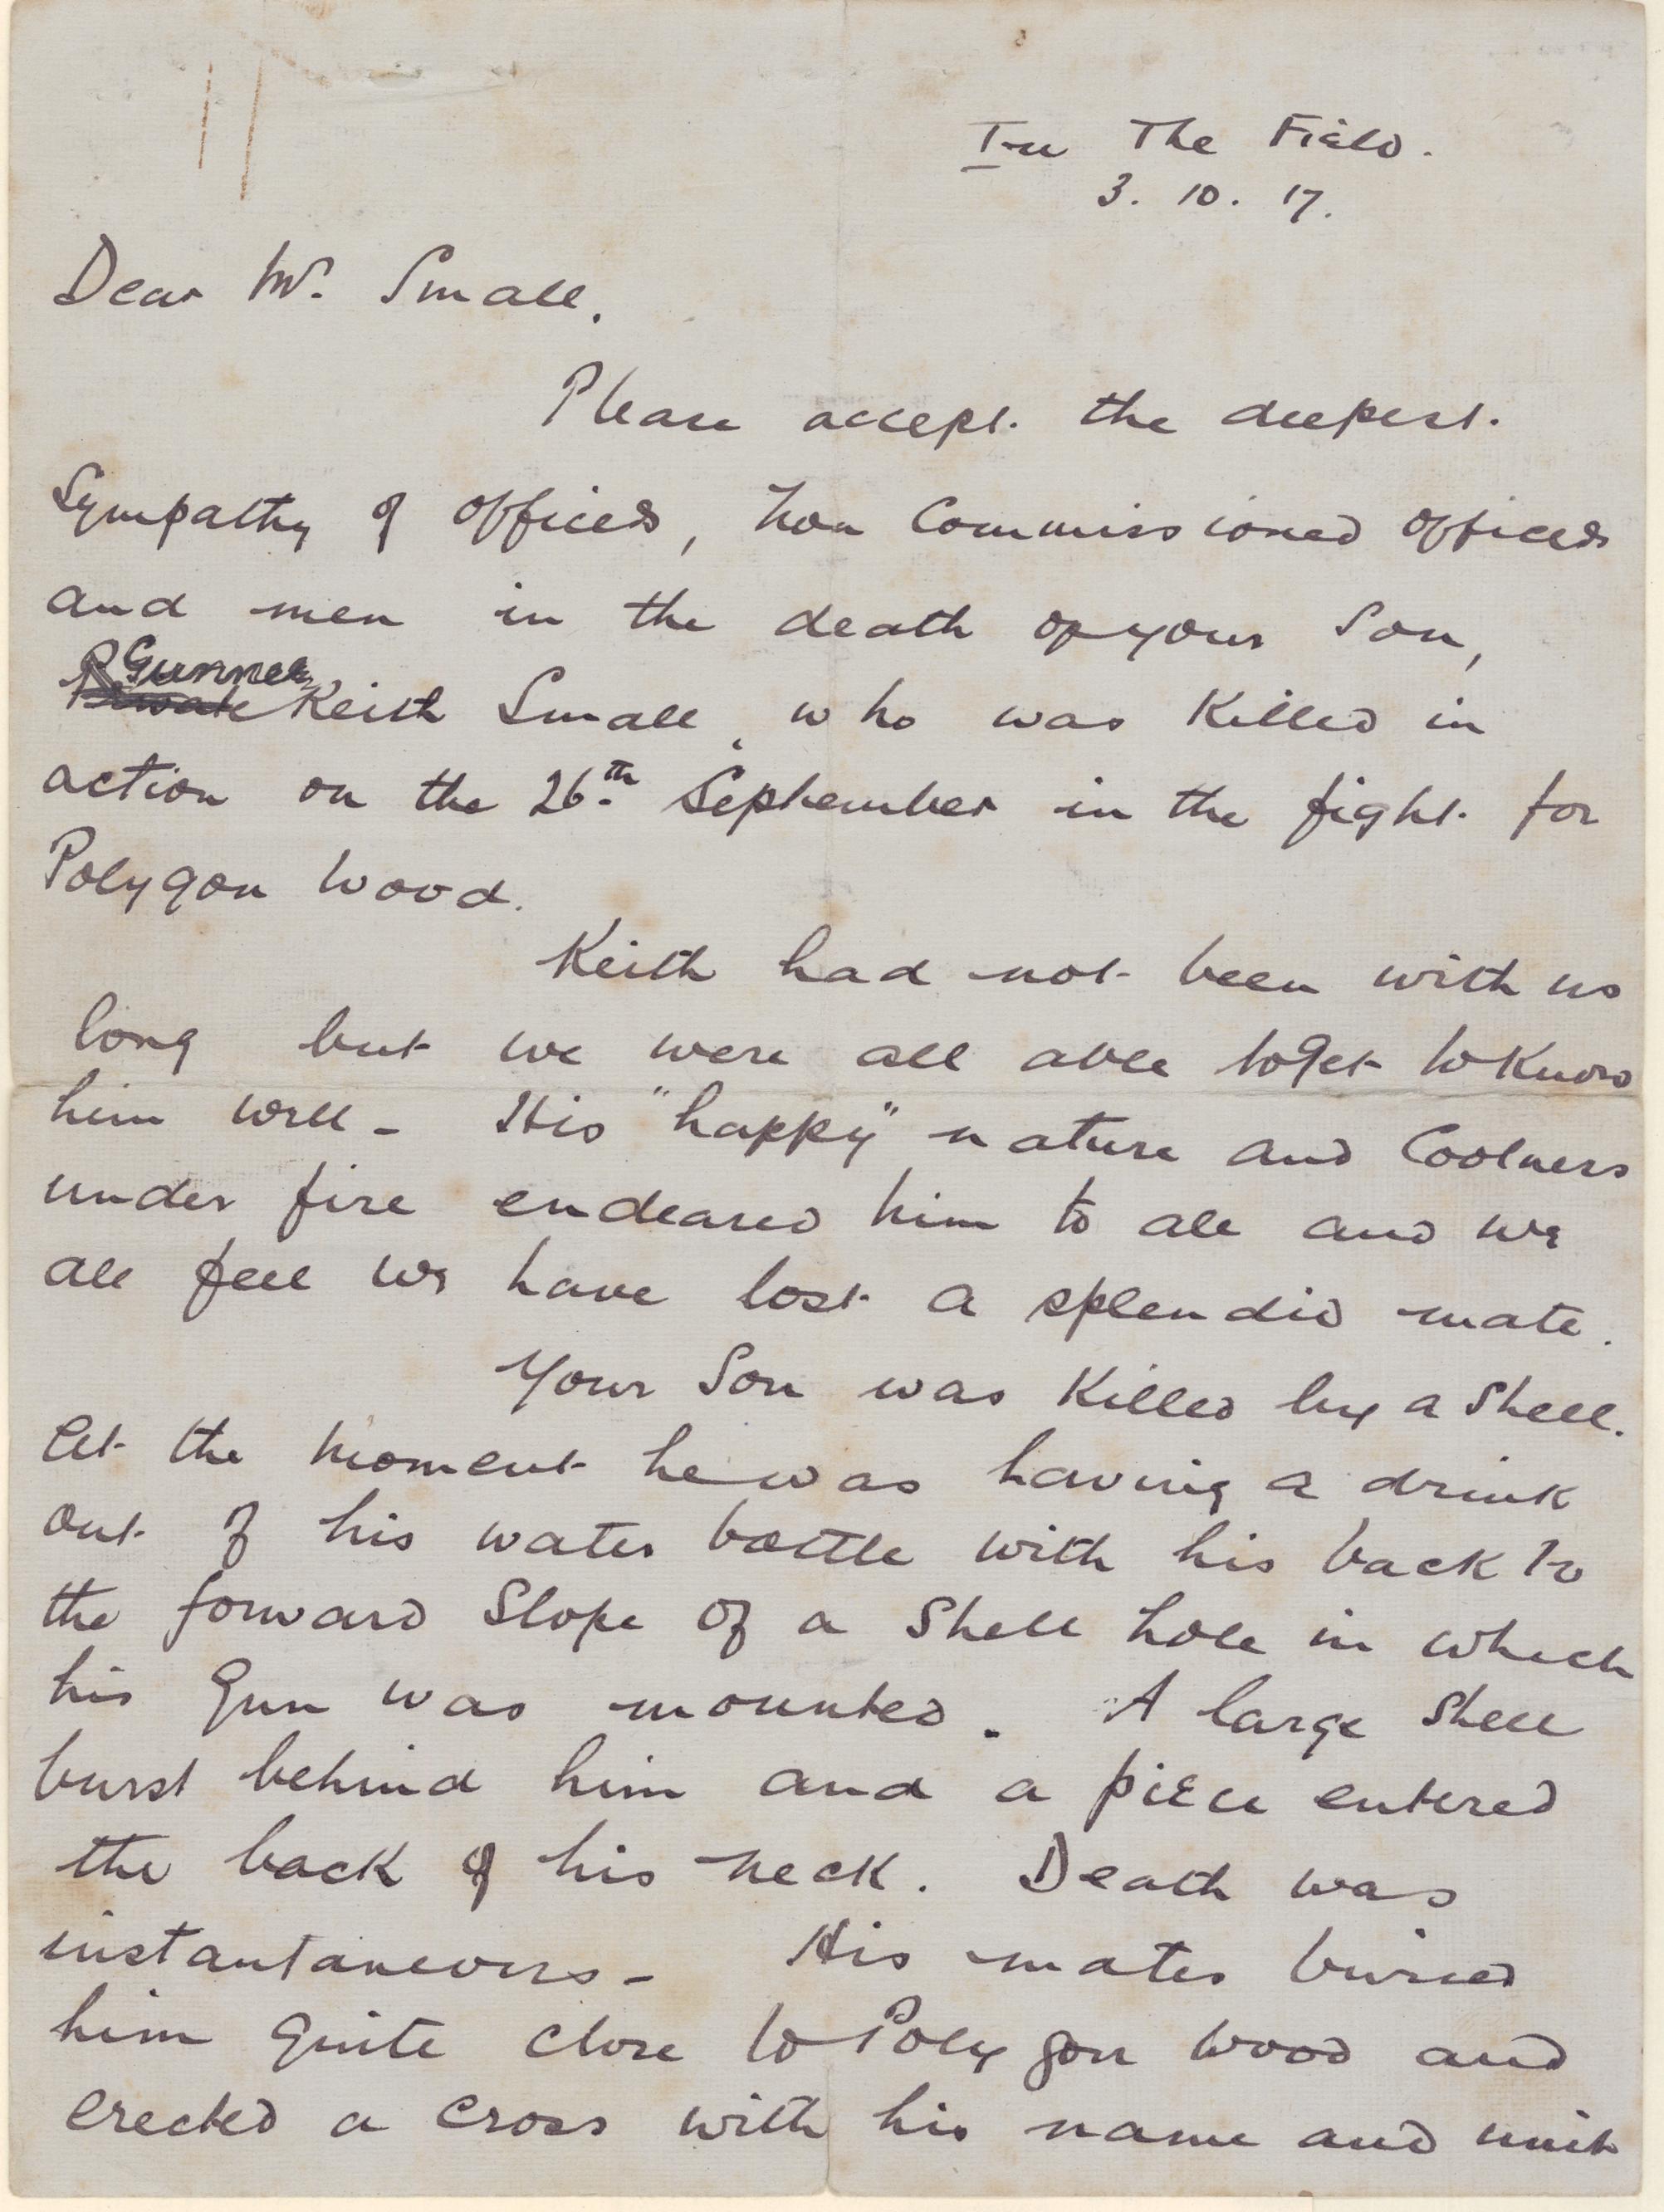 In The Field.
3. 10. 17.
Dear Mr. Small.
Please accept the deepest
Sympathy of officers, non Commissioned officers
and men in the death of your Son,
Gunner
Private Keith Small, who was Killed in
action on the 26th September in the fight for
Polygon Wood.
Keith had not been with us
long but we were all able to get to Know
him well - His "happy" nature and Coolness
under fire endeared him to all and we
all feel we have lost a splendid mate.
Your Son was Killed by a Shell.
At the moment he was having a drink
out of his water bottle with his back to
the forward Slope of a Shell hole in which
his Gun was mounted. A large Shell
burst behind him and a piece entered
the back of his neck. Death was
instantaneous - His mates buried
him quite close to Polygon Wood and
erected a cross with his name and unit